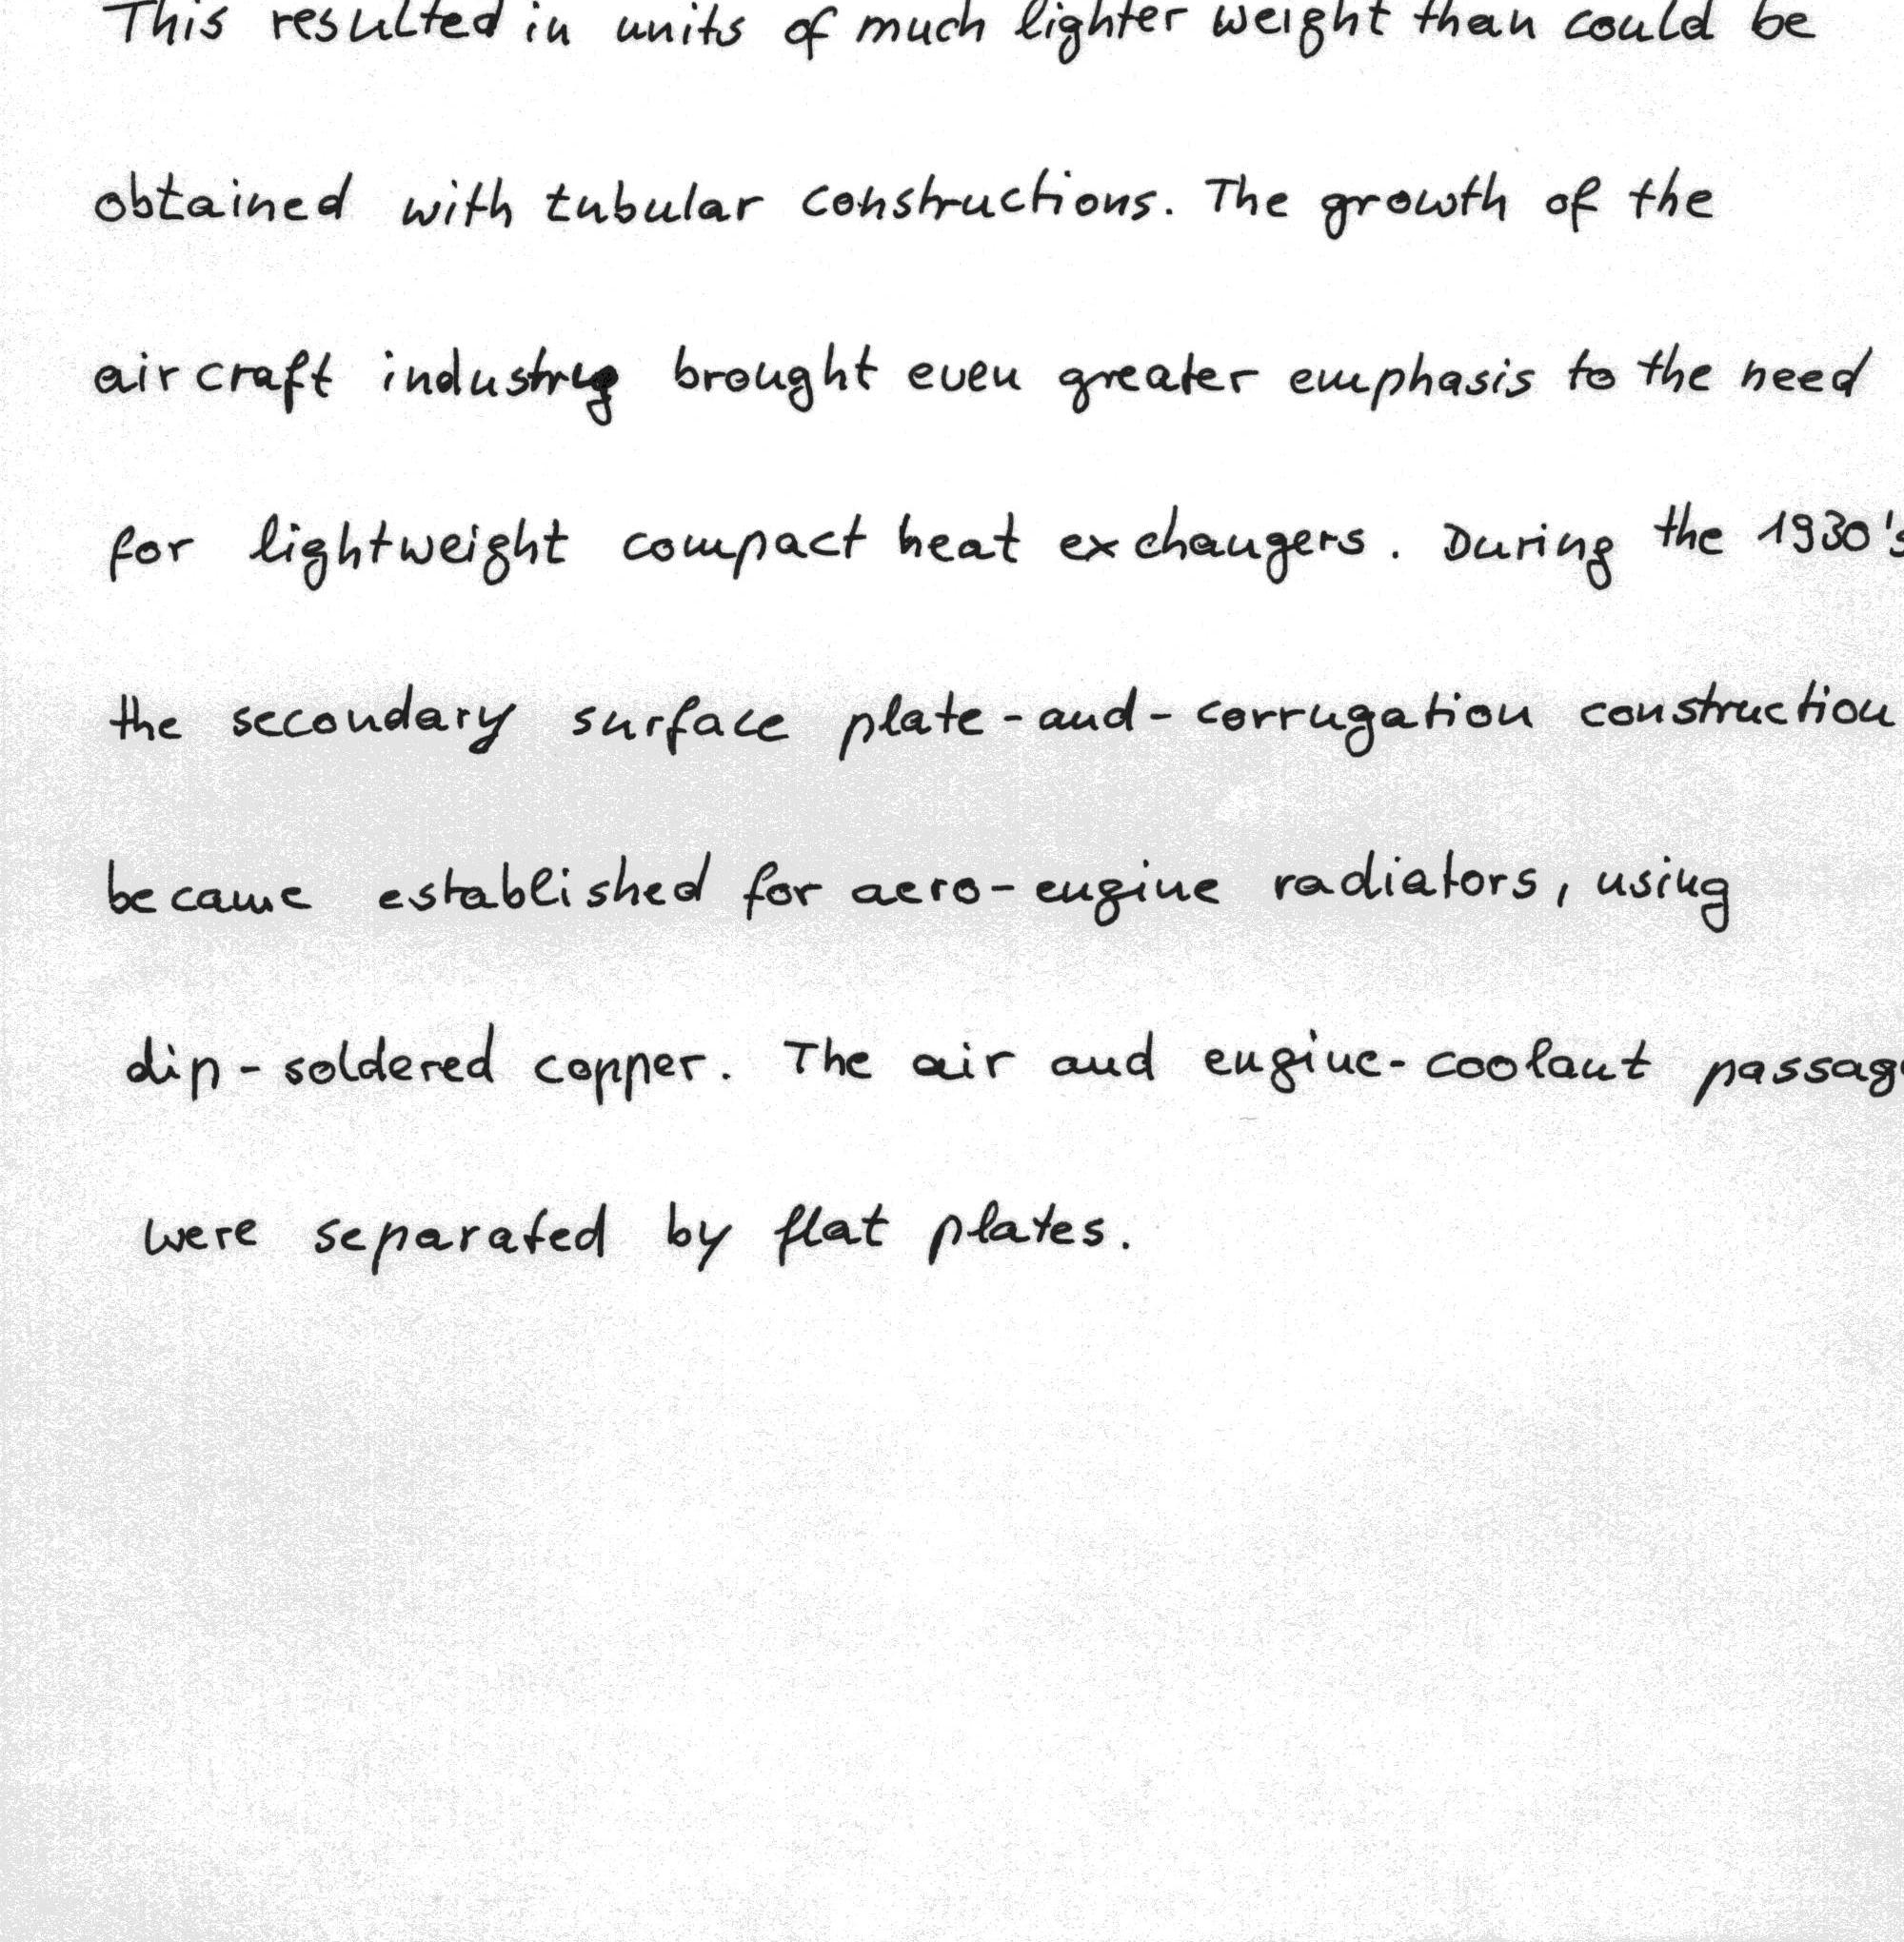 This resulted in units of much lighter weight than could be
obtained with tubular constructions. The growth of the
aircraft industry brought even greater emphasis to the need
for lightweight compact heat exchangers. During the 1930's
the secondary surface plate-and-corrugation construction
became established for aero-engine radiators, using
dip-soldered copper. The air and engine-coolant
were separated by flat plates.